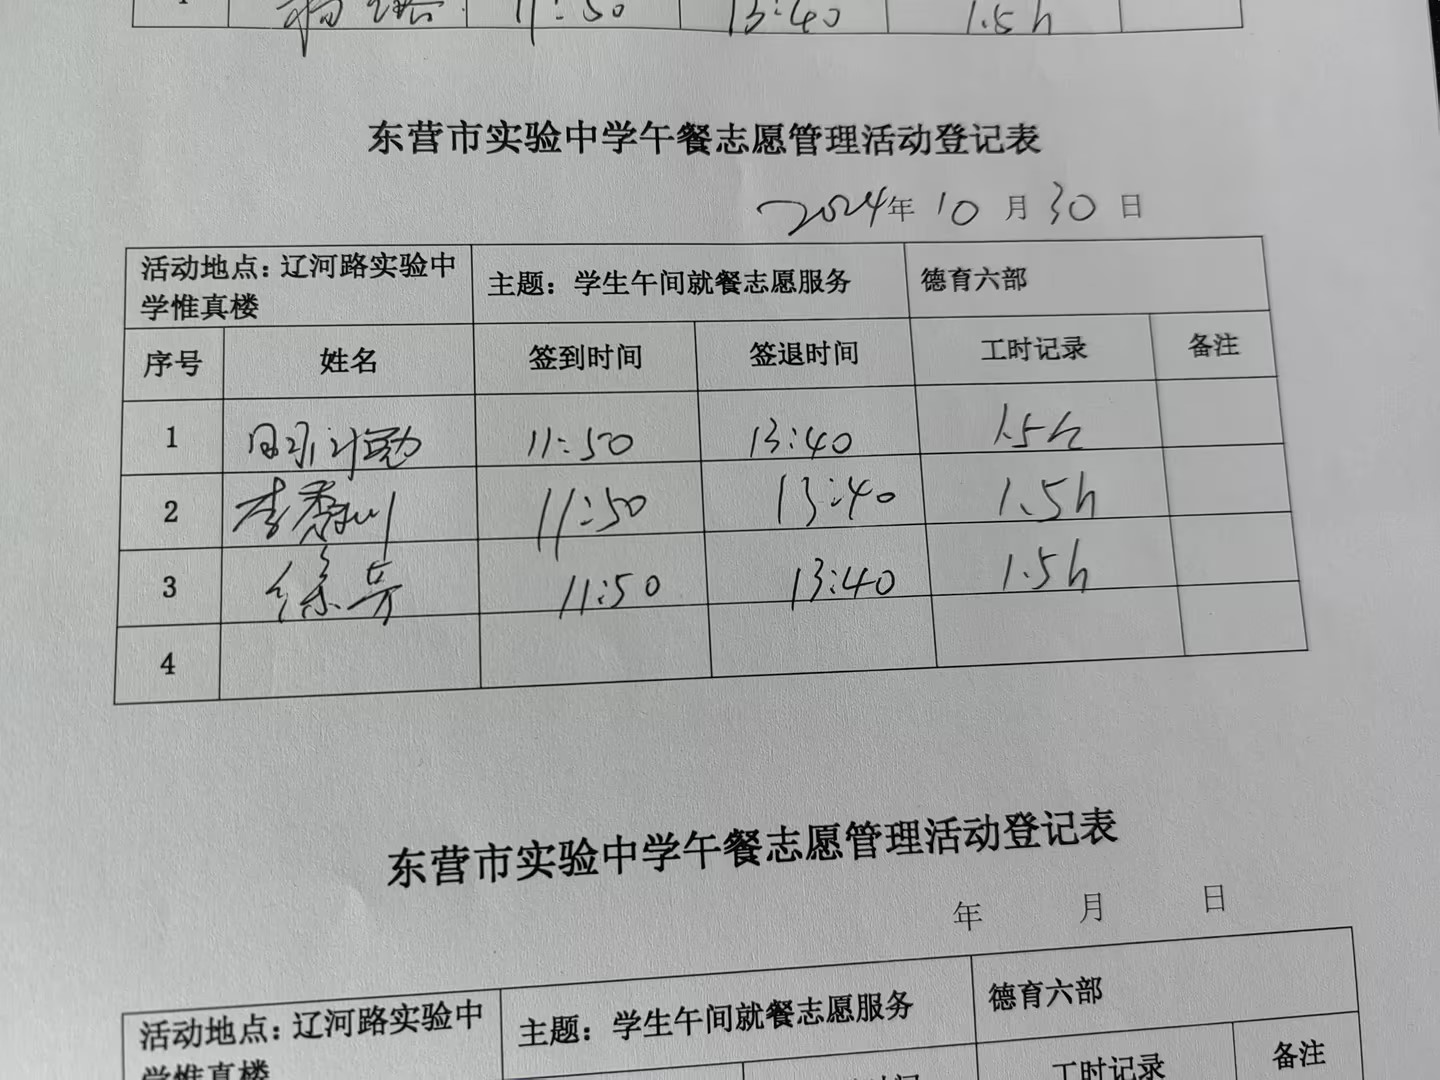 11:50 13:40 1.5h
东营市实验中学午餐志愿管理活动登记表
2024年 10 月 30 日
活动地点：辽河路实验中学惟真楼 主题：学生午间就餐志愿服务 德育六部
序号 姓名 签到时间 签退时间 工时记录 备注
1 11:50 13:40 1.5h
2 李秀川 11:50 13:40 1.5h
3 徐芳 11:50 13:40 1.5h
4
东营市实验中学午餐志愿管理活动登记表
年 月 日
活动地点：辽河路实验中学惟真楼 主题：学生午间就餐志愿服务 德育六部
工时记录 备注